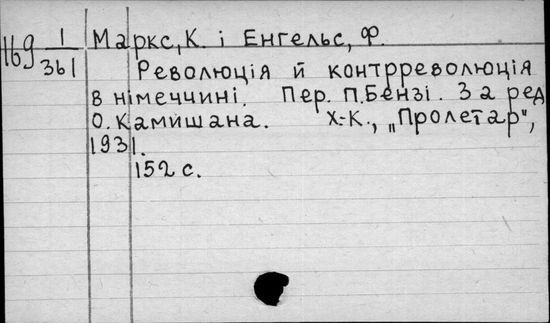 Маркс, К. і Енгельс, Ф.
1169 1/361
Революція й контрреволюція
в німеччині. Пер. П.Бензі. За ред
О. Камишана. Х.-К., „Пролетар",
1931.
152 с.